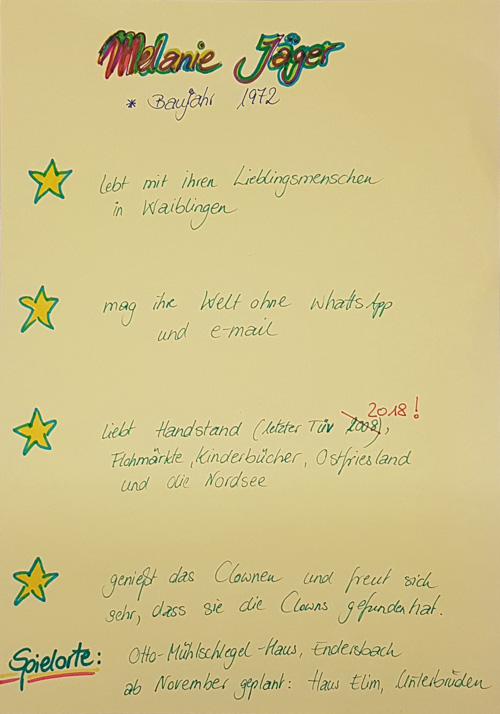 Melanie Jäger
* Baujahr 1972
lebt mit ihren Lieblingsmenschen
in Waiblingen
mag ihre Welt ohne WhattsApp
und e-mail
2018!
liebt Handstand (letzter TÜV 2008),
Flohmärkte, Kinderbücher, Ostfriesland
und die Nordsee
genießt das Clownen und freut sich
sehr, dass sie die Clowns gefunden hat.
Spielorte: Otto-Mühlschlegel-Haus, Endersbach
ab November geplant: Haus Elim, Unterbrüden